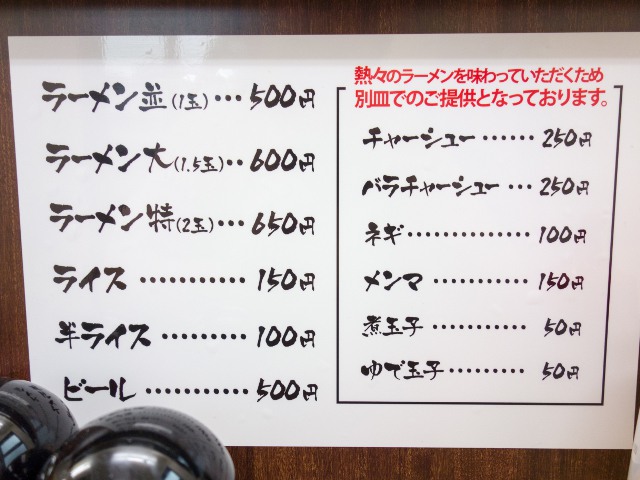 ラーメン並(1玉)…500円
ラーメン大(1.5玉)‥600円
ラーメン特(2玉)…650円
ライス…………150円
半ライス………100円
ビール…………500円
熱々のラーメンを味わっていただくため
別皿でのご提供となっております。
チャーシュー……250円
バラチャーシュー…250円
ネギ……………100円
メンマ…………150円
煮玉子…………50円
ゆで玉子………50円